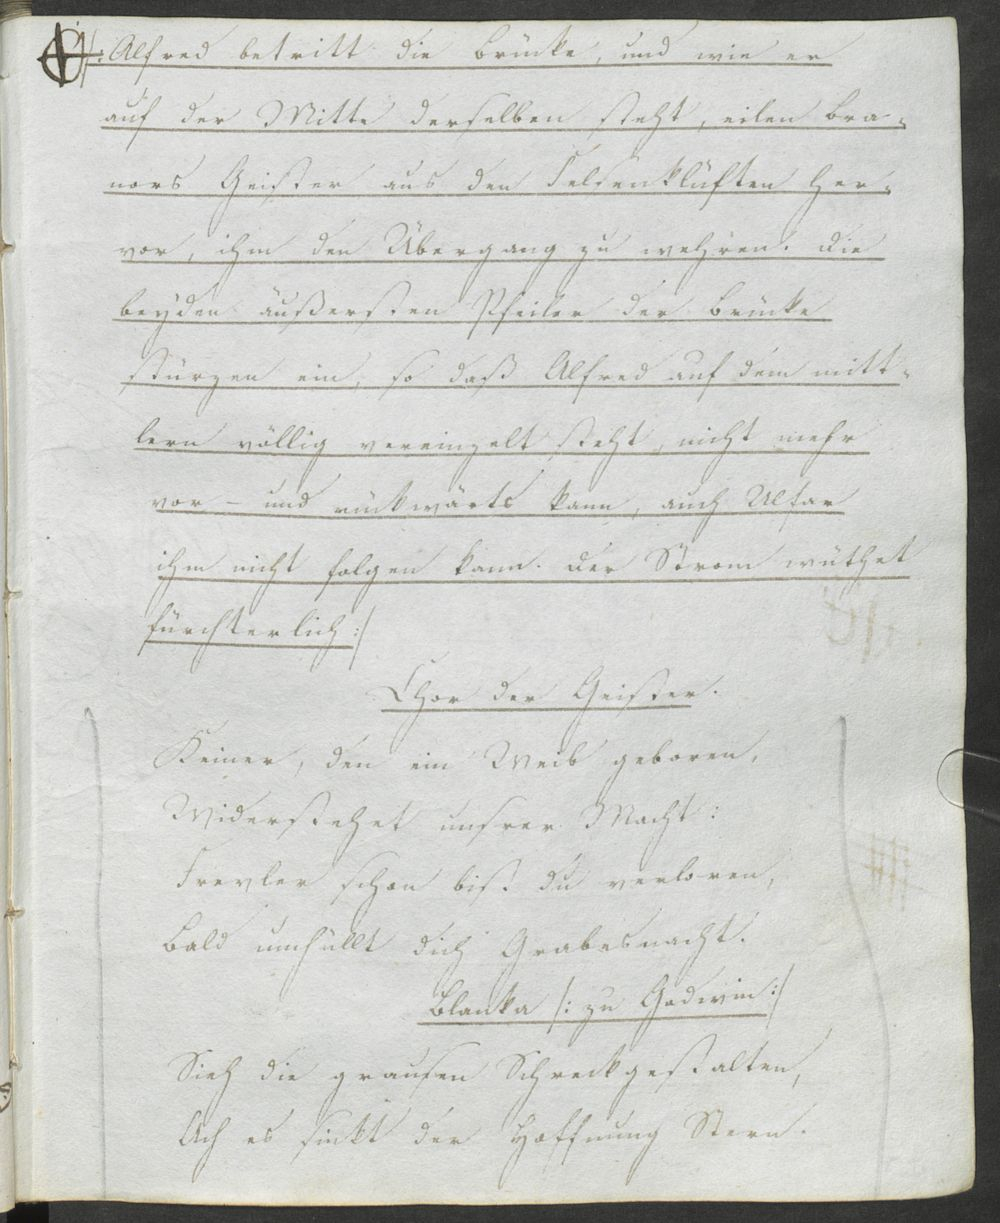 /: Alfred betritt die Brücke, und wie er
auf der Mitte derselben steht, eilen Bra-
nors Geister aus den Felsenklüften her-
vor, ihm den Übergang zu wehren. Die
beyden äußersten Pfeiler der Brücke
stürzen ein, so daß Alfred auf dem mitt-
lern völlig vereinzelt steht, nicht mehr
vor- und rückwärts kann, auch Ulfar
ihm nicht folgen kann. Der Strom wüthet
fürchterlich :/
Chor der Geister.
Keiner, den ein Weib geboren,
Widerstehet unsrer Macht:
Frevler schon bist du verloren,
Bald umhüllt dich Grabesnacht.
Blanka /: zu Godwin :/
Sieh die grausen Schreckgestalten,
Ach es sinkt der Hoffnung Stern.